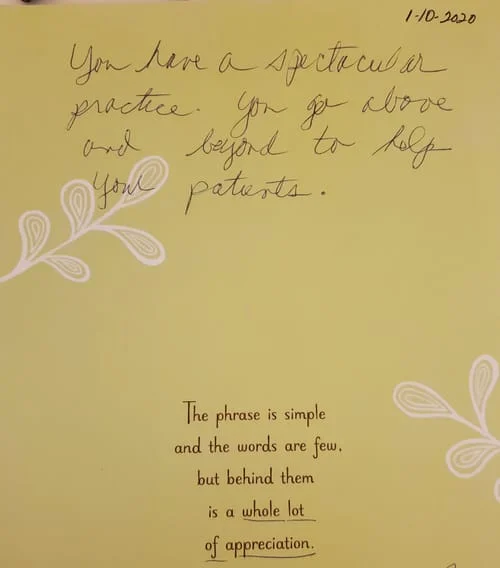 1-10-2020
You have a spectacular
practice. You go above
and beyond to help
your patients.
The phrase is simple
and the words are few,
but behind them
is a whole lot
of appreciation.